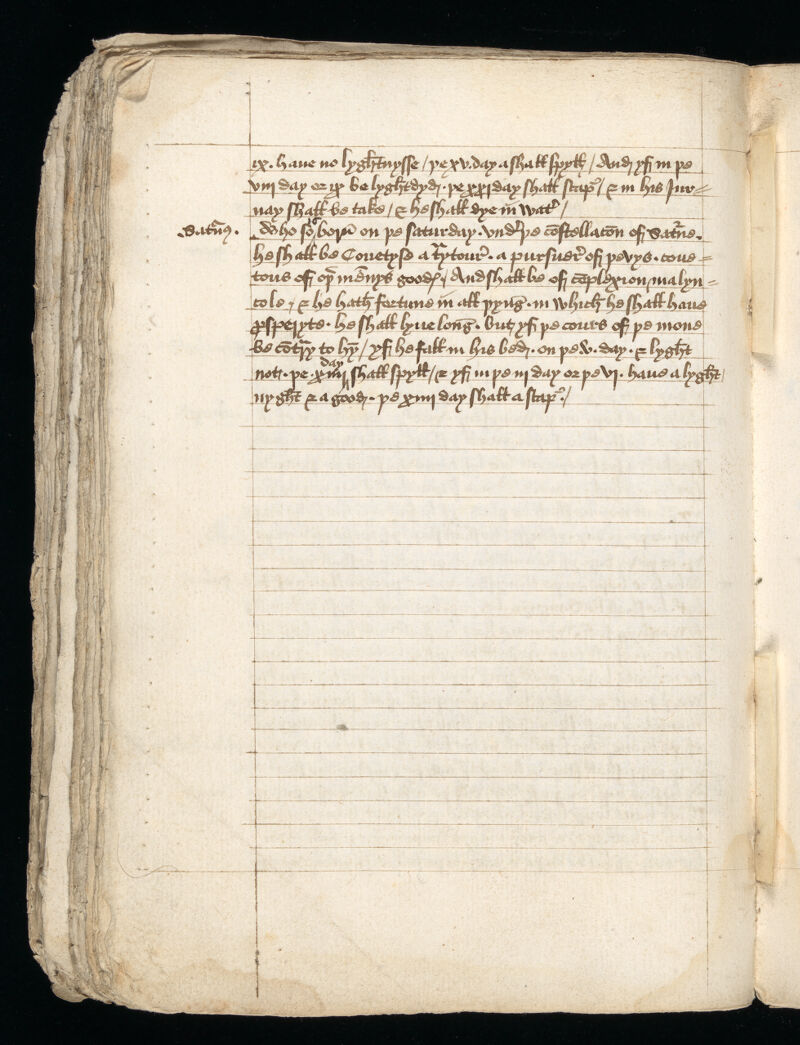 ix. haue no lyghtnysse / þe xv. day a shall spyll / And yf in þe
viij day or ix be lyghtdyd . þe xxj day shall scape / & in his Jur=
nay shall be take / & he shall dye in Wat' /
Satn9 .
Who so born on þe saturday . vnd' þe costellacon of Satne .
he shall be Couetyse a trytour . a pursuer of þevys . coue=
tous of oþ menys good / And shall be of coplexion malyn=
cole / & he hath fortune in all þyng . in which he shall haue
pspeyte . he shall lyue long . but yf þe cours of þe mone
be cotry to hy / yf he fall in his bed . on þe v. day . & lyght
not . þe . xiiij day shall spyll / & yf in þe iij day or þe vj . haue a lyght /
nyght & a good . þe xiiij day shall a scap' . /